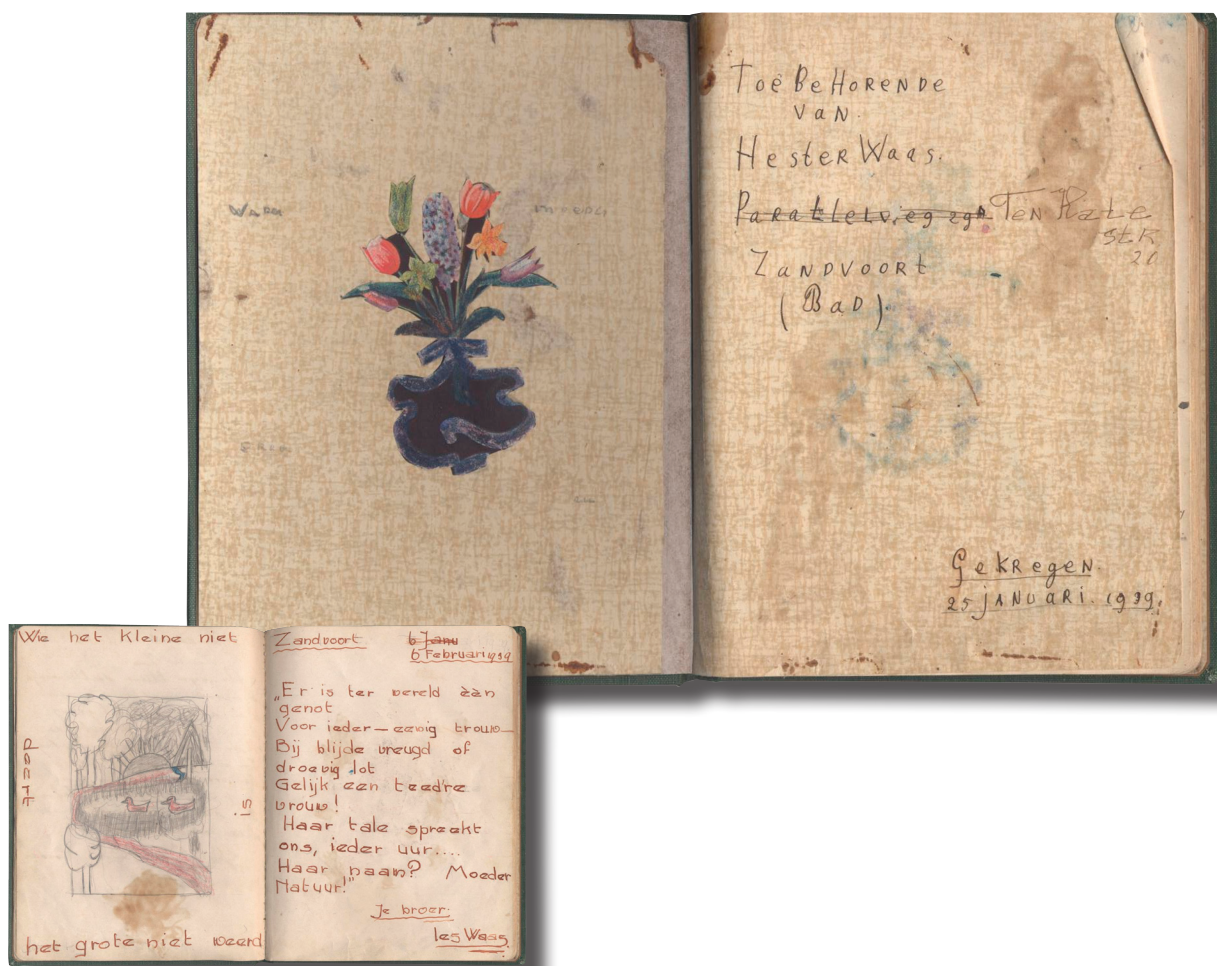 ToëBeHORENDE
VaN.
HesterWaas.
Parallelweg zgn. TeN Kate
StR
20
ZANDVOORT
(BaD).
GeKRegeN.
25 JANUARI. 1939.
Wie het kleine niet
deert
is
het grote niet weerd
Zandvoort 6 Janu
6 Februari 1939
„Er is ter wereld èèn
genot
Voor ieder — eewig trouw —
Bij blijde vreugd of
droevig lot
Gelijk een teed're
vrouw!
Haar tale spreekt
ons, ieder uur....
Haar naam? Moeder
Natuur!"
Je broer.
Ies Waas.